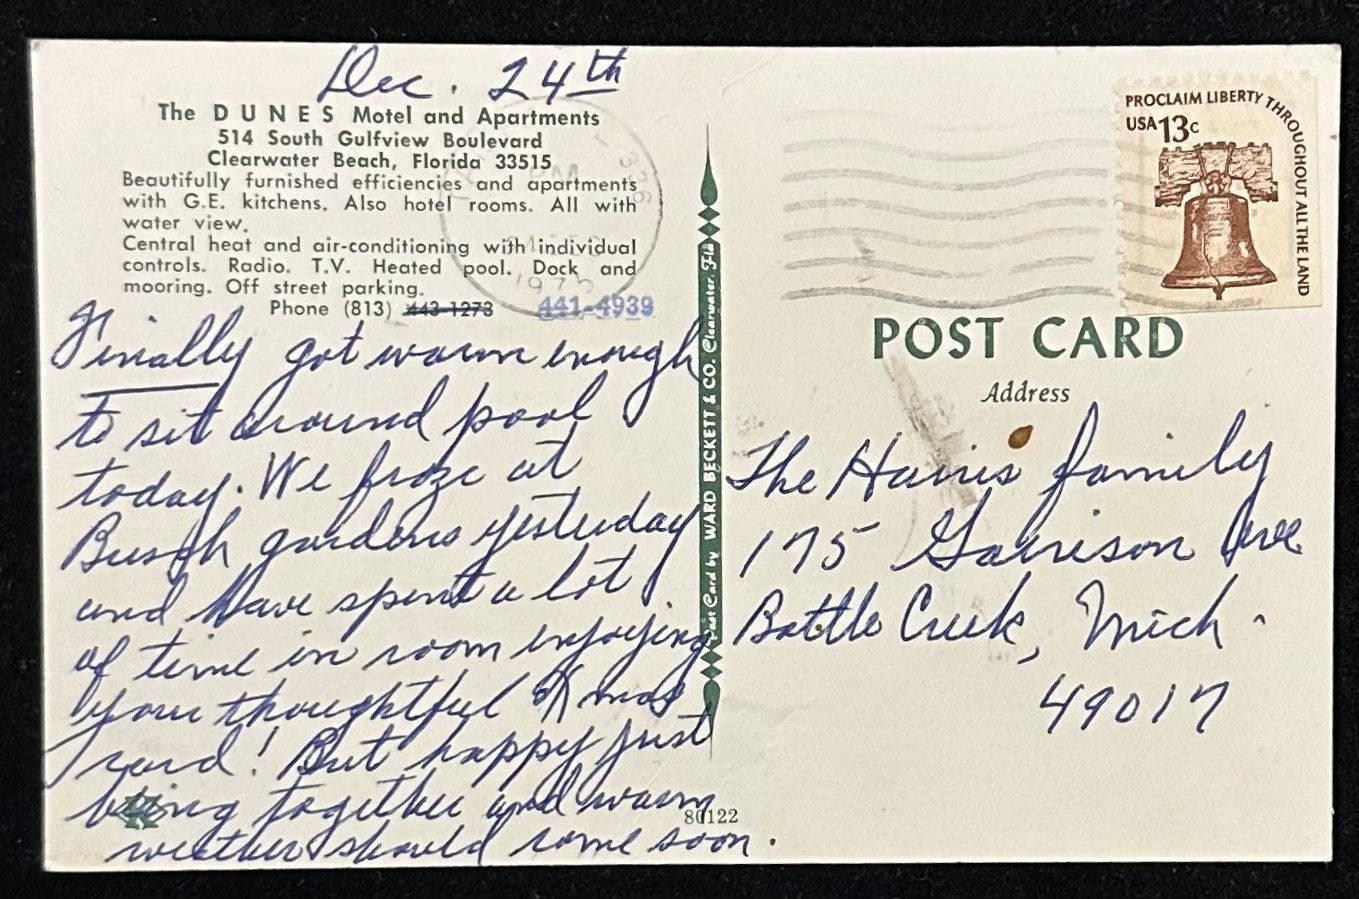 Dec. 24th
The DUNES Motel and Apartments
514 South Gulfview Boulevard
Clearwater Beach, Florida 33515
Beautifully furnished efficiencies and apartments
with G.E. kitchens. Also hotel rooms. All with
water view.
Central heat and air-conditioning with individual
controls. Radio. T.V. Heated pool. Dock and
mooring. Off street parking.
Phone (813) 443-1273 441-4939
Finally got warm enough
to sit around pool
today. We froze at
Busch gardens yesterday
and have spent a lot
of time in room enjoying
your thoughtful Xmas
card! But happy just
being together and warm
weather should come soon.
80122
Post Card by WARD BECKETT & CO. Clearwater, Fla
336
PM
24 DEC
1975
PROCLAIM LIBERTY THROUGHOUT ALL THE LAND
USA 13c
POST CARD
Address
The Harris family
175 Garrison Ave
Battle Creek, Mich.
49017